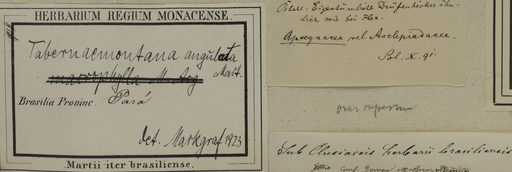 HERBARIUM REGIUM MONACENSE.
Tabernaemontana angulata
Mart.
macrophylla M. Arg
Brasilia Provinc. Pará
det. Markgraf 1923
Martii iter brasiliense.
Blatt. Eigentümliche Drüsenhöcker ähn-
lich wie bei
Apocynacea vel Asclepiadacea.
Sol. X. 91.
Sub Clusiaceis herbarii brasiliensis